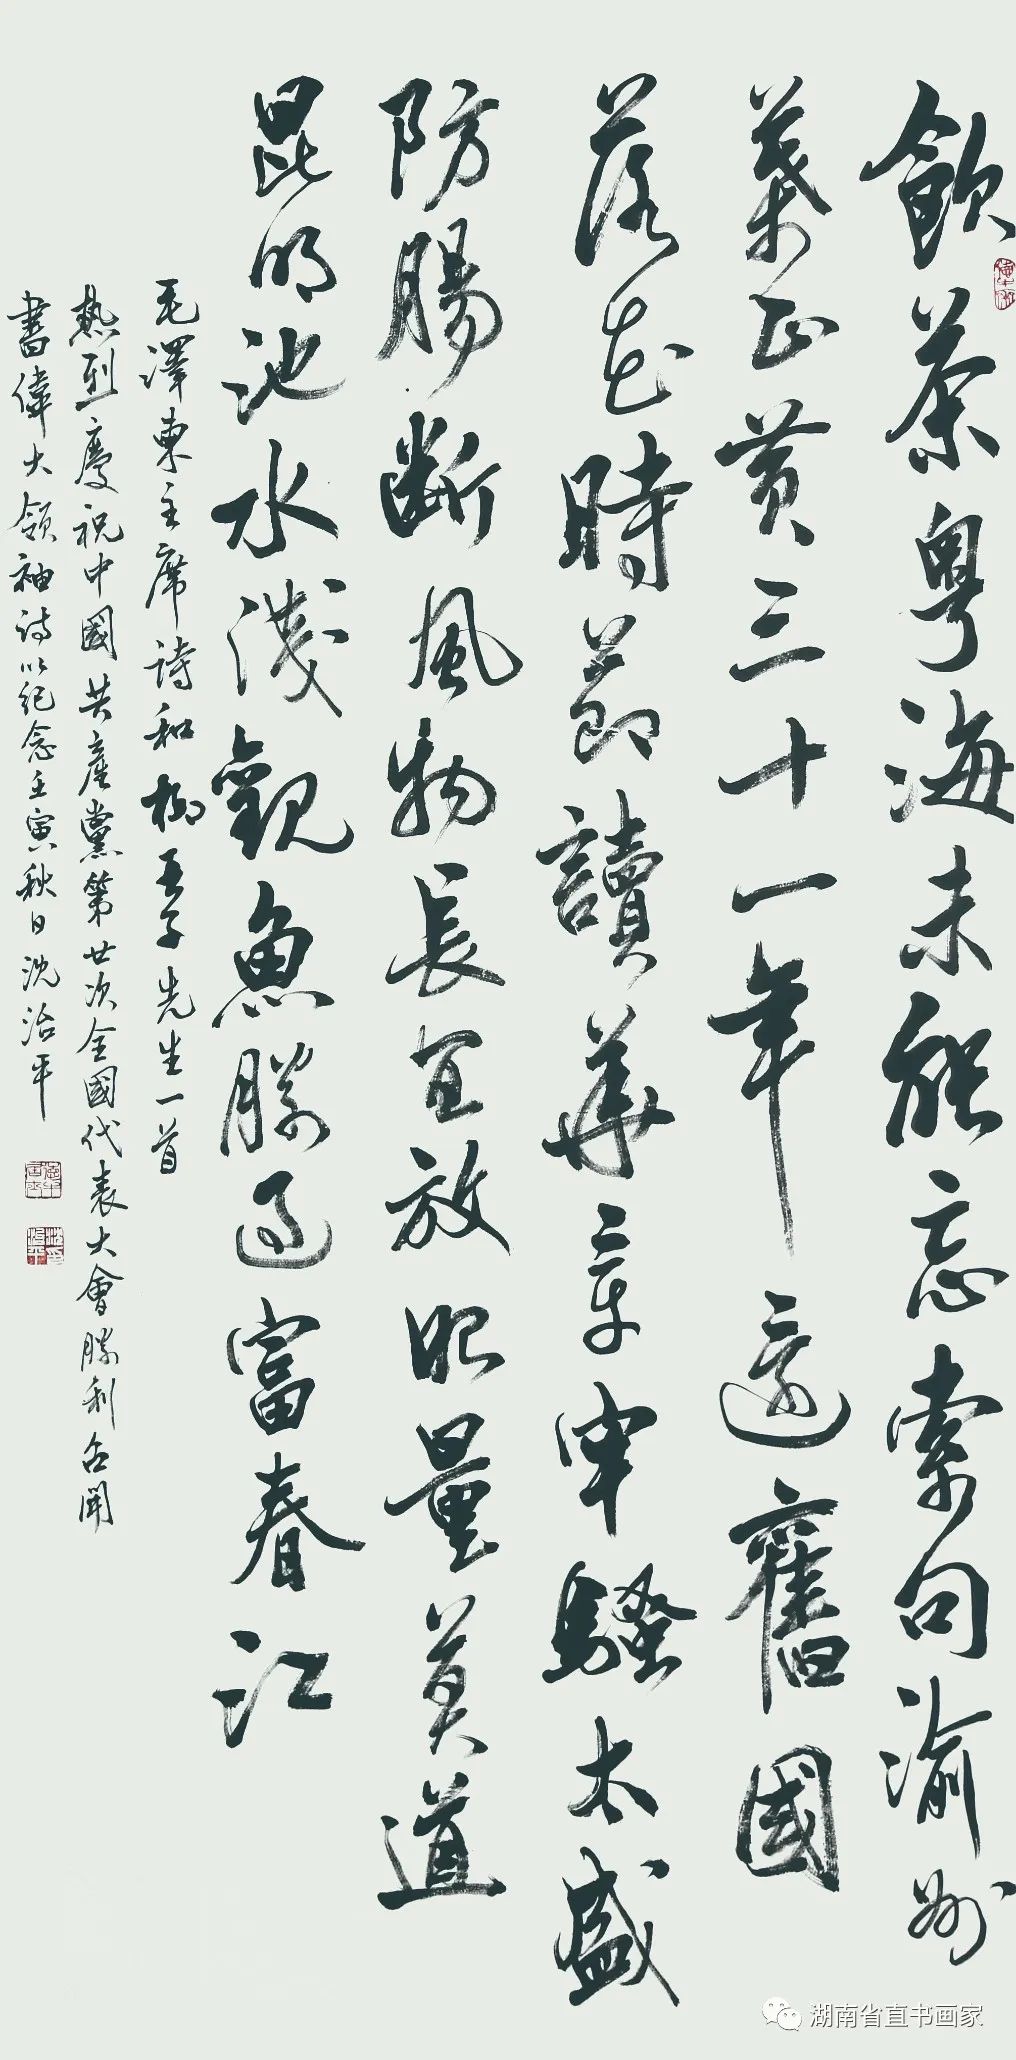 飲茶粵海未能忘索句渝州
葉正黃三十一年還舊國
落花時節讀華章牢騷太盛
防腸斷風物長宜放眼量莫道
昆明池水淺觀魚勝過富春江
毛澤東主席詩和柳亞子先生一首
熱烈慶祝中國共產黨第廿次全國代表大會勝利召開
書偉大領袖詩以紀念壬寅秋日沈治平
湖南省直书画家